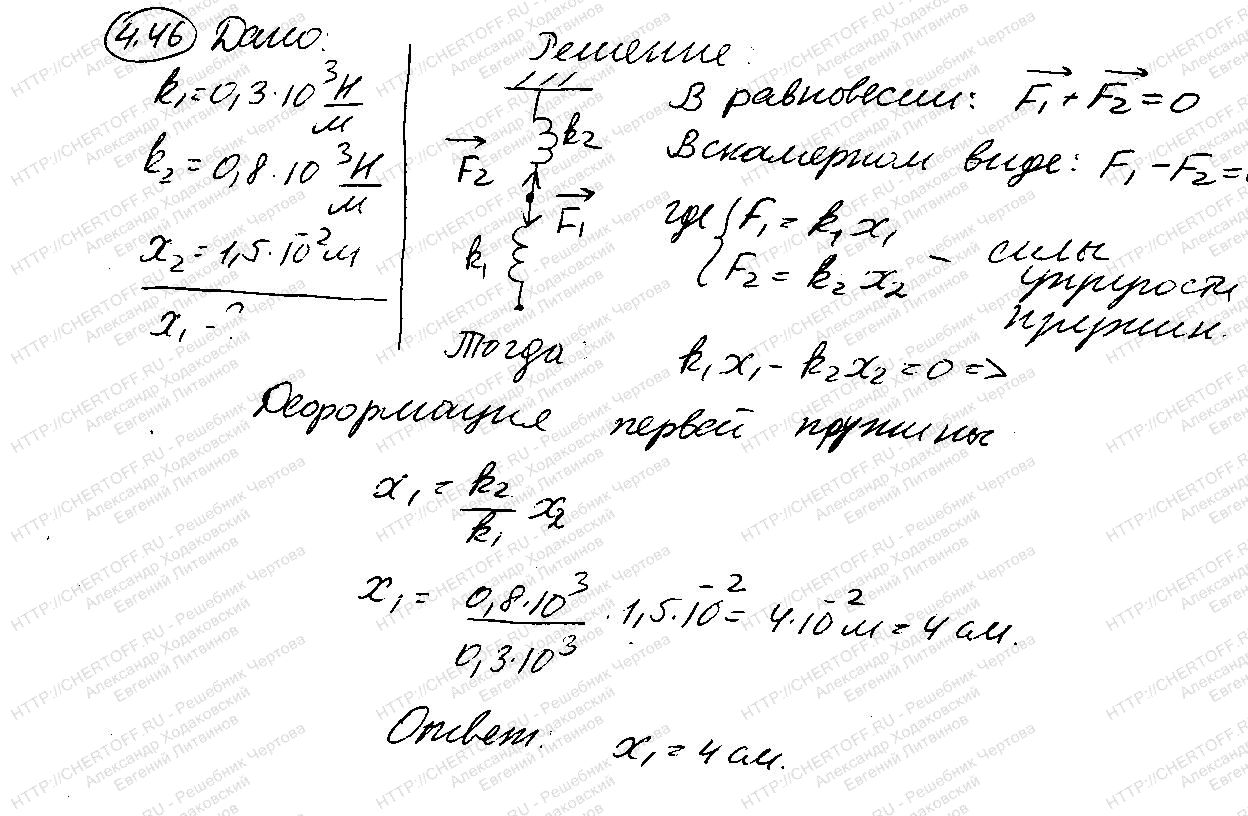 4.46 Дано:
k₁=0,3·10³ Н/м
k₂=0,8·10³ Н/м
x₂=1,5·10⁻² м
x₁-?
Решение:
k₂
F₂
F₁
k₁
В равновесии: F₁+F₂=0
В скалярном виде: F₁-F₂=
где { F₁=k₁x₁
F₂=k₂x₂ - силы
упругости
пружин.
Тогда: k₁x₁-k₂x₂=0=>
Деформация первой пружины
x₁=k₂/k₁ x₂
x₁= 0,8·10³/0,3·10³ ·1,5·10⁻²=4·10⁻² м=4 см.
Ответ: x₁=4 см.
HTTP://CHERTOFF.RU - Решебник Чертова
Александр Ходаковский
Евгений Литвинов